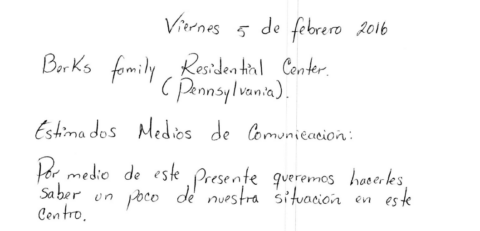 Viernes 5 de febrero 2016
Berks family Residential Center.
(Pennsylvania).
Estimados Medios de Comunicacion:
Por medio de este Presente queremos hacerles
saber un poco de nuestra situacion en este
centro.